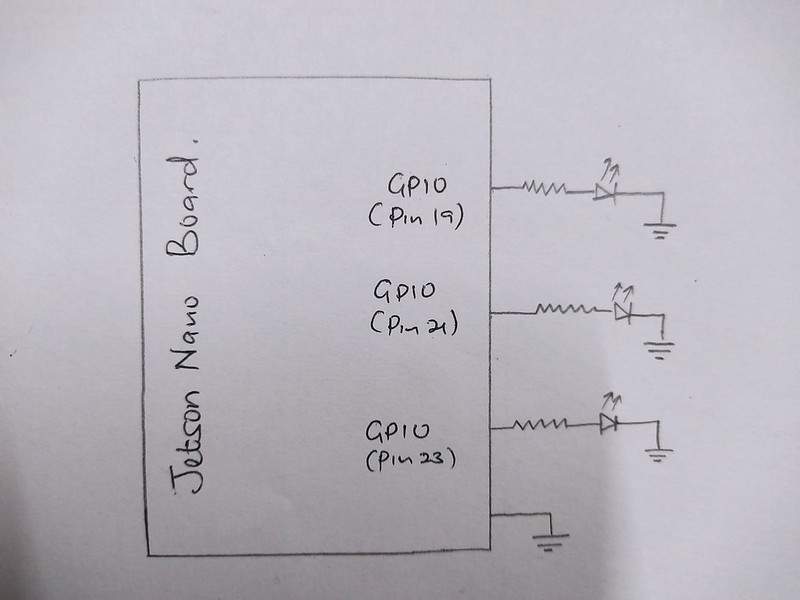 Jetson Nano Board.
GPIO
(Pin 19)
GPIO
(Pin 21)
GPIO
(Pin 23)